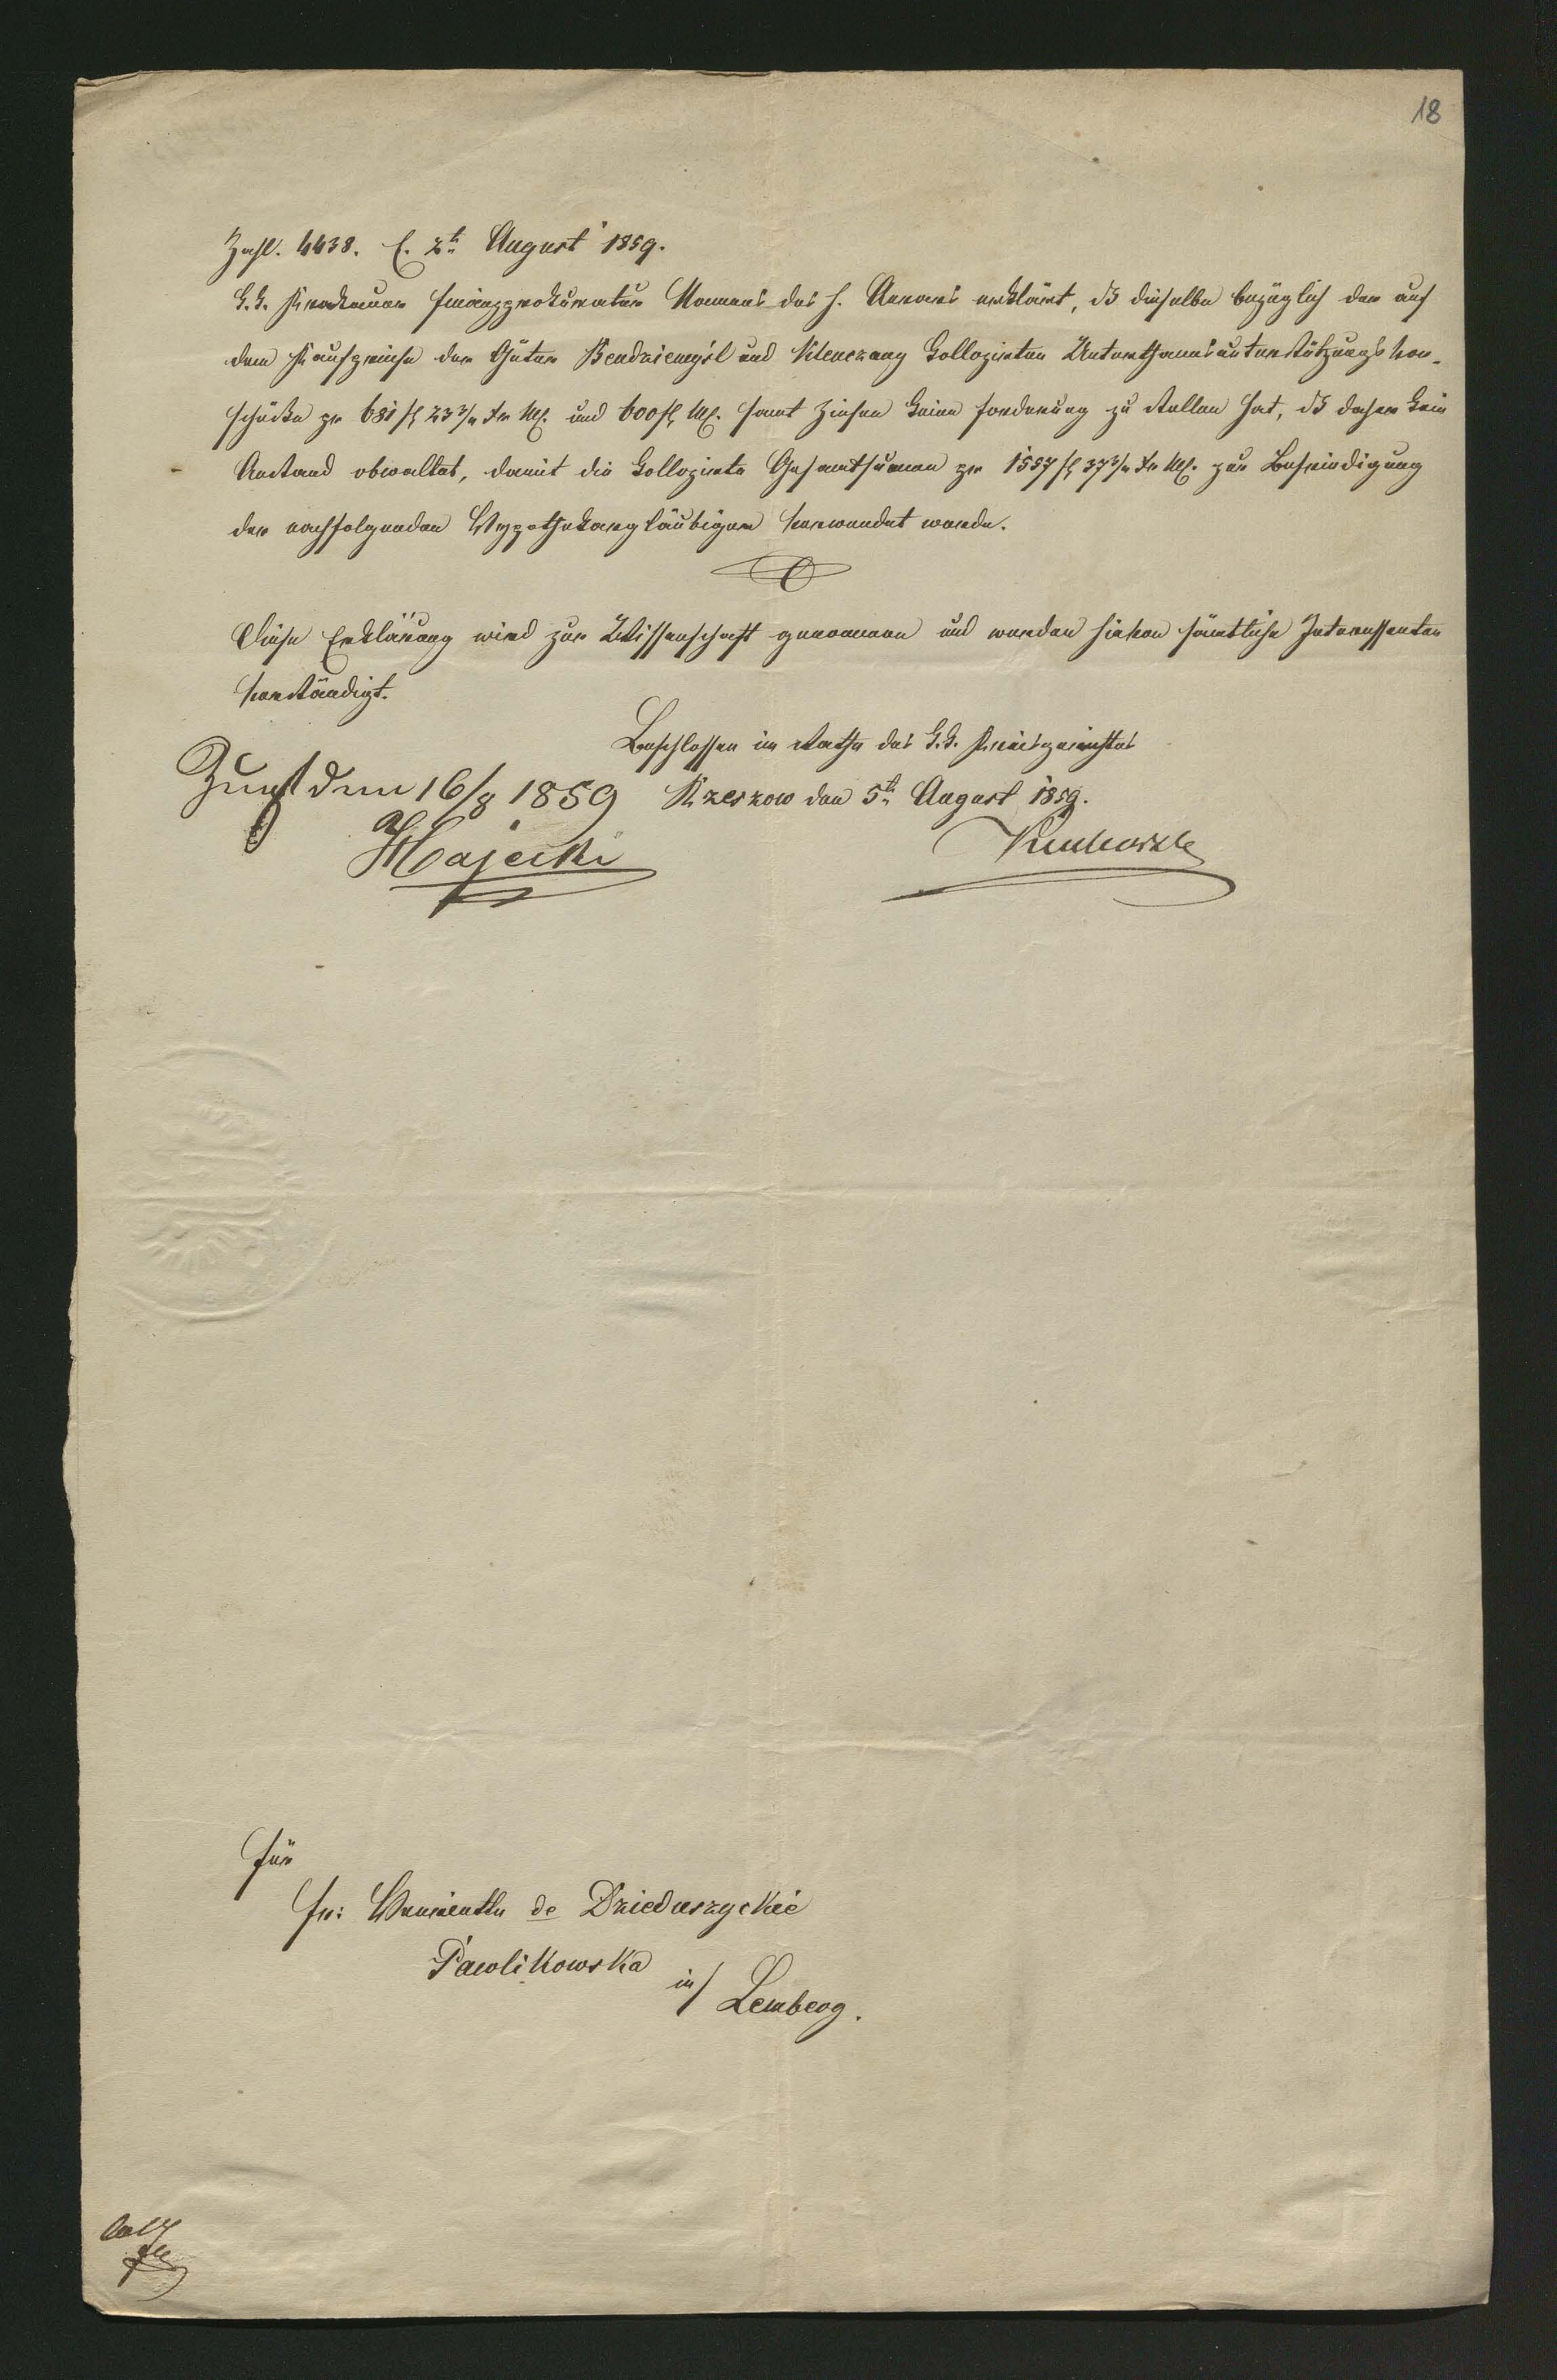 18
Zahl. 4438. E. 2te August 1859.
K.K. Krakauer Finanzprokuratur Namens des h. Aerars erklärt, dß dieselbe bezüglich der auf
dem Kaufpreise der Güter Bendziemyśl und Klenczany kollozirten Unterthansunterstützungsvor-
schüße pr 681 fl 23 3/4 xr CM. und 600 fl CM. samt Zinsen keine Forderung zu stellen hat, dß daher kein
Anstand obwaltet, damit die kollozirte Gesamtsumme pr 1557 fl 37 3/4 xr CM. zur Befriedigung
der nachfolgenden Hypothekargläubiger verwendet werde.
Diese Erklärung wird zur Wissenschaft genommen und werden hievon sämtliche Interessenten
verständigt.
Beschlossen im Rathe des k.k. Kreisgerichtes
Rzeszow den 5te August 1859.
Zugst den 16/8 1859
Majecki
Für
Fr: Henriette de Dzieduszyckie
Pawlikowska
in/ Lemberg.